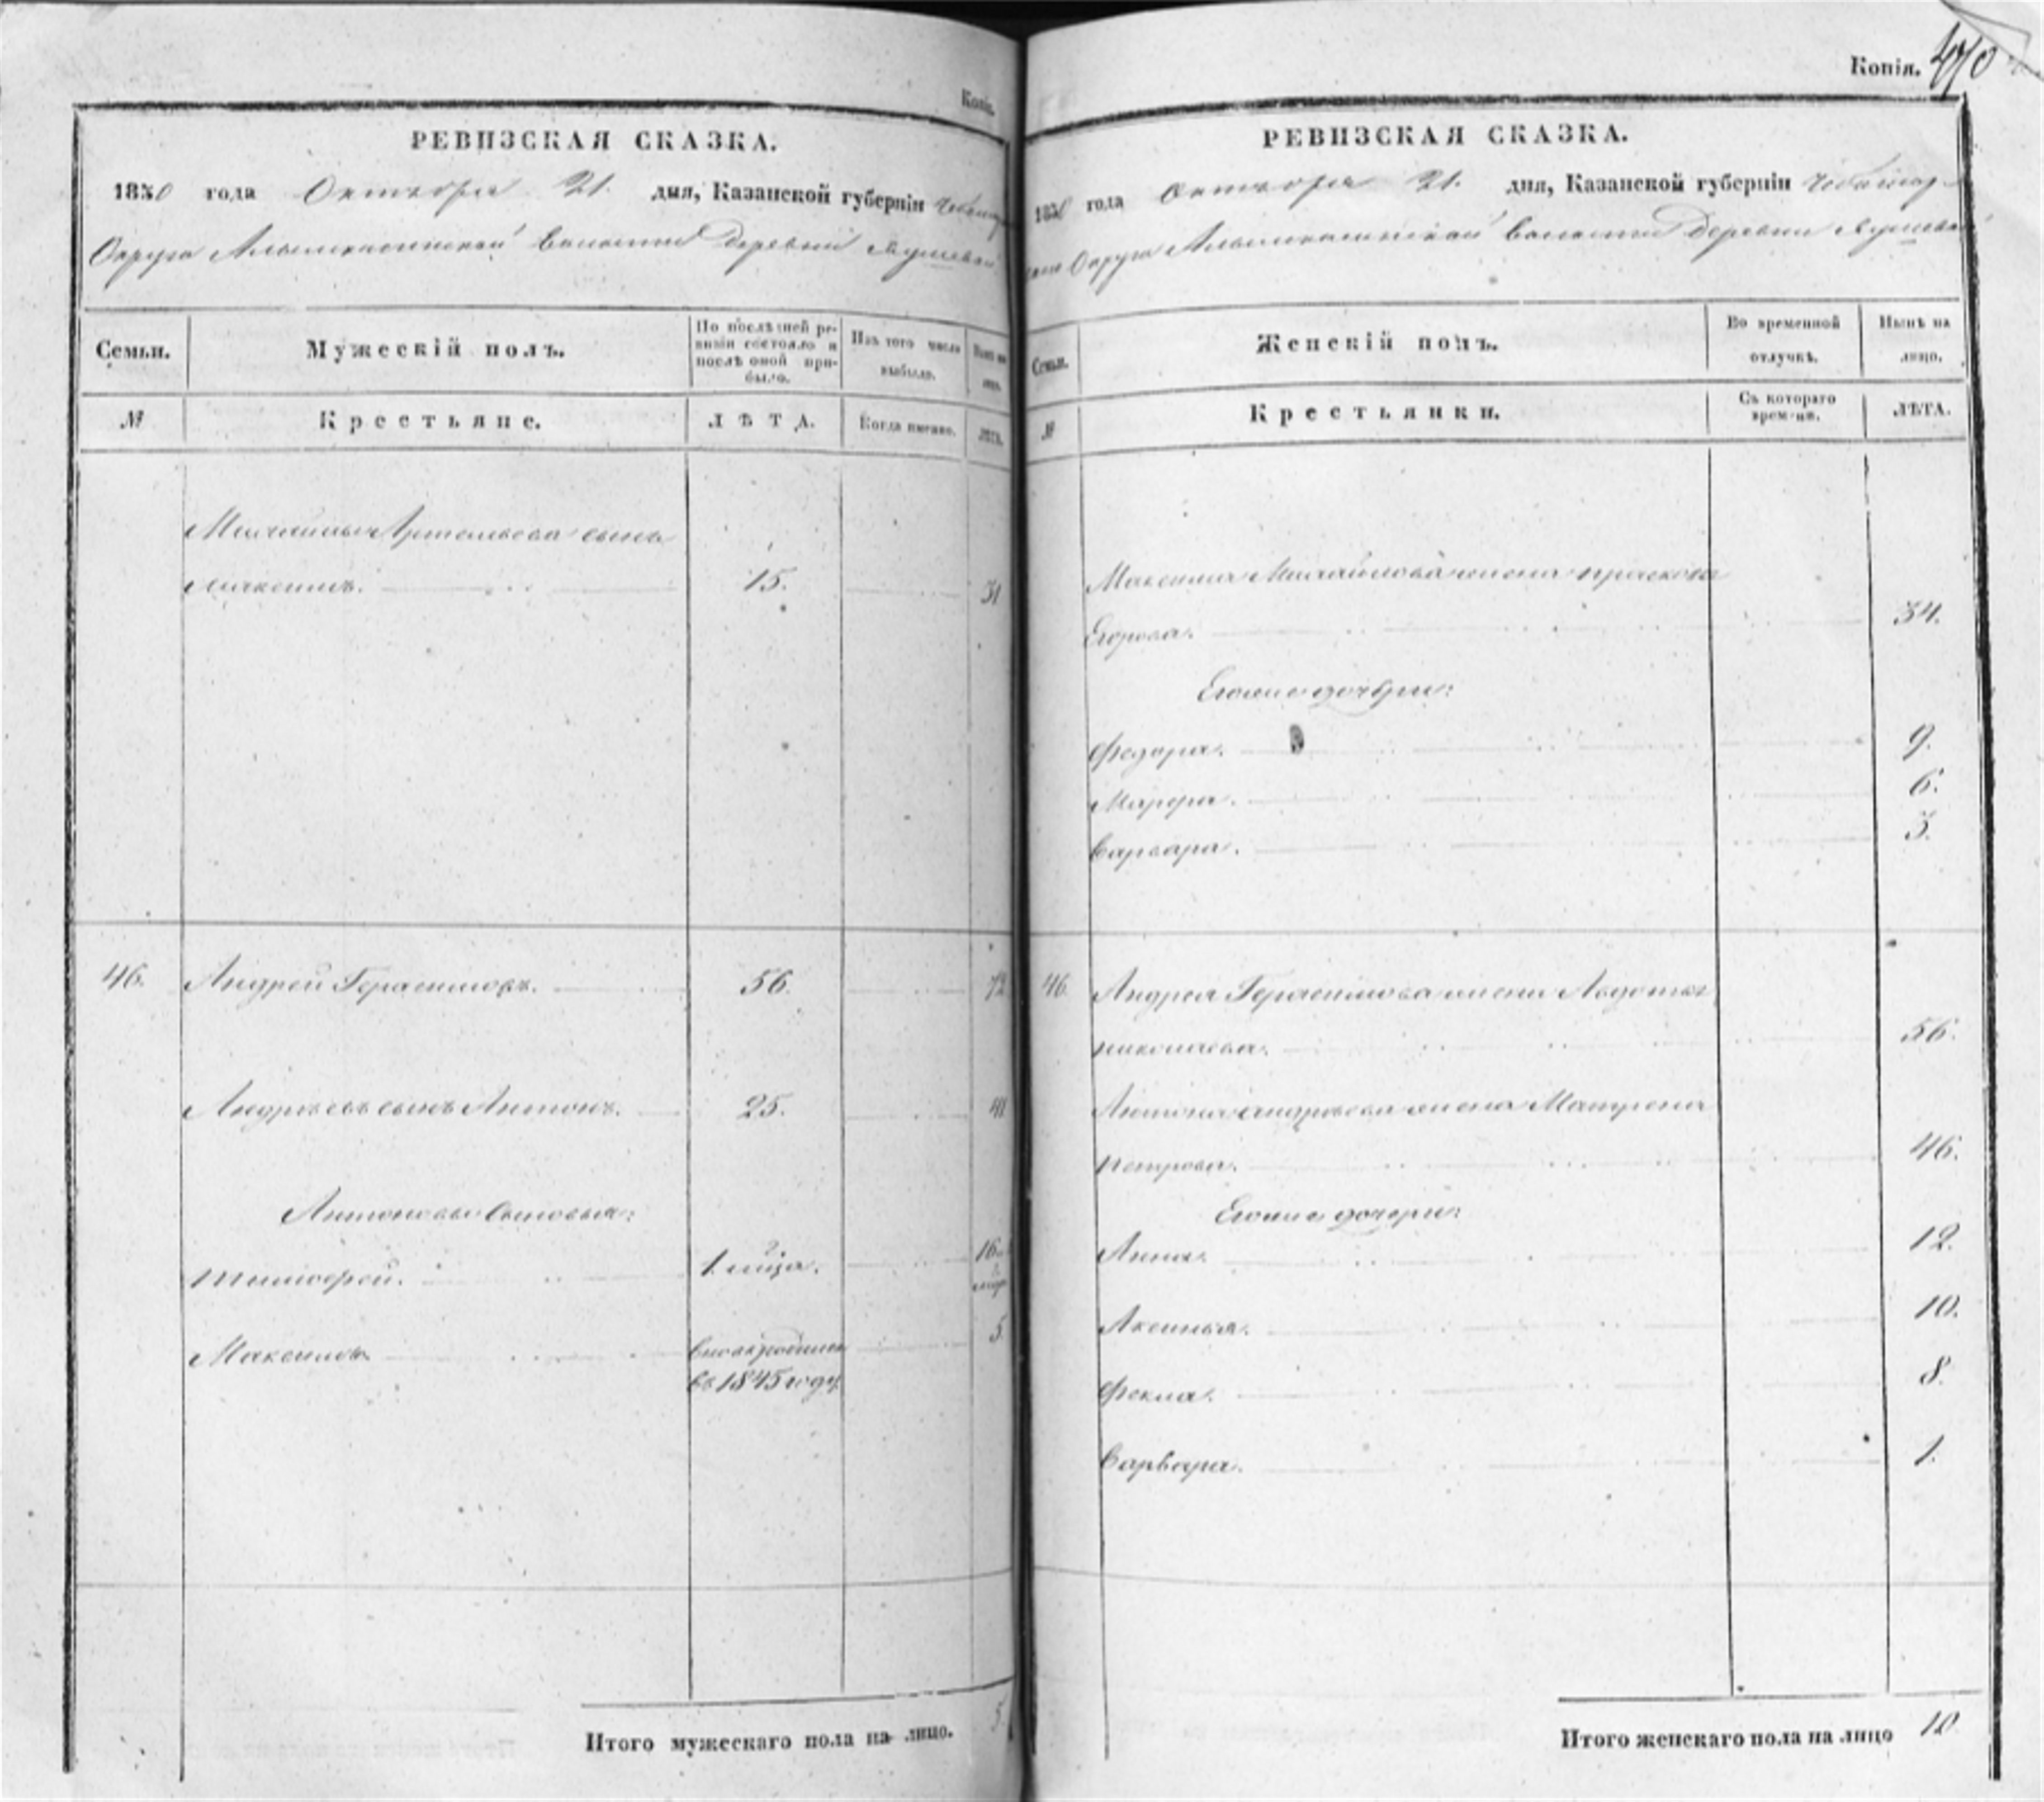 Копія.
РЕВИЗСКАЯ СКАЗКА.
1850 года Октября 21. дня, Казанской губерніи
Округа Волости деревни
Семьи.
Мужескій полъ.
По послѣдней ре-
визіи состояло и
послѣ оной при-
было.
Изъ того числа
выбыло.
Нынѣ на
лицо.
№
Крестьяне.
ЛѢТА.
Когда именно.
ЛѢТА.
Артемьева сынъ
Максимъ. 15. 31
46. Андрей Герасимовъ. 56. 72
Андреевъ сынъ Антонъ. 25. 41
Антоновы сыновья:
Тимофей. 1. мѣца. 16.
Максимъ вновь рожденъ 5.
въ 1845 году
Итого мужескаго пола на лицо. 5.
Копія. 470
РЕВИЗСКАЯ СКАЗКА.
1850 года Октября 21. дня, Казанской губерніи Чебоксар-
скаго Округа Волости Деревни
Семьи.
Женскій полъ.
Во временной
отлучкѣ.
Нынѣ на
лицо.
№
Крестьянки.
Съ котораго
времени.
ЛѢТА.
Максима Михайлова жена Прасковья
Егорова. 34.
Егоже дочери:
Федора. 9.
Марфа. 6.
Варвара. 3.
46 Андрея Герасимова жена Авдотья
Николаева. 56.
Антона Андреева жена Матрена
Петрова. 46.
Егоже дочери:
Анна. 12.
Аксинья. 10.
Фекла. 8.
Варвара. 1.
Итого женскаго пола на лицо 10